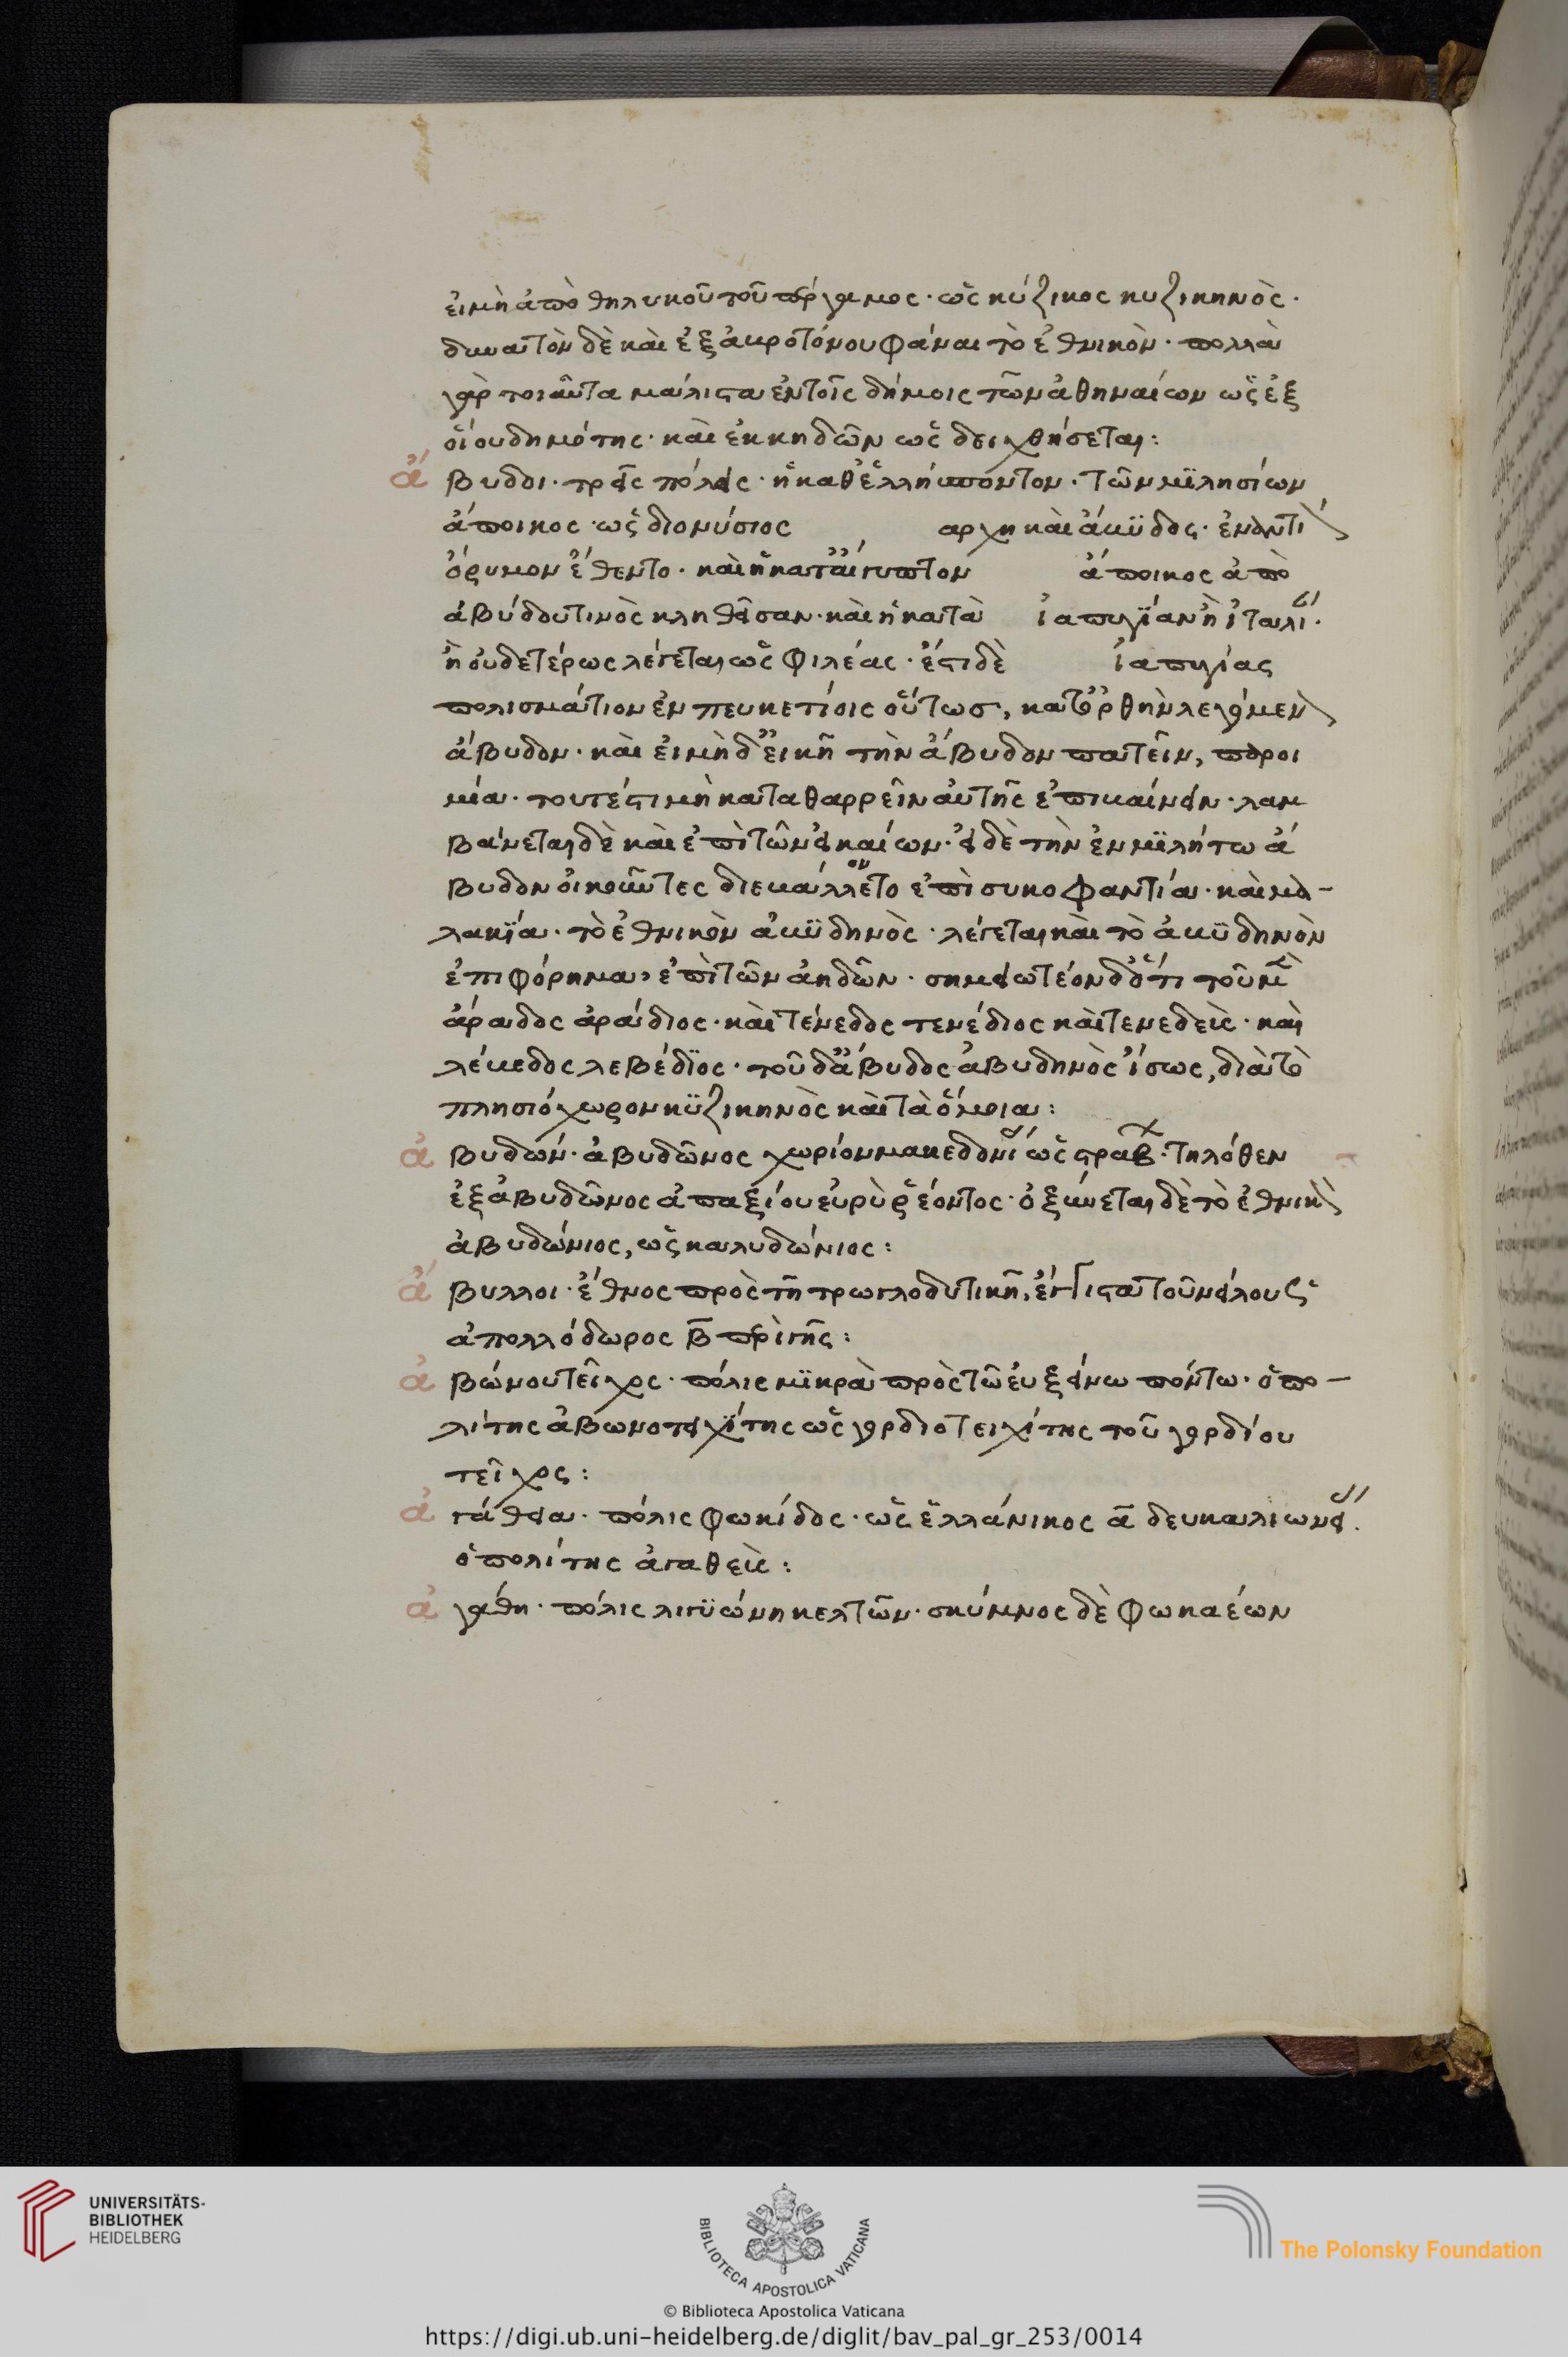 εἰ μὴ ἀπὸ θηλυκοῦ τοῦ πέργαμος · ὡς κύζικος κυζικηνὸς ·
δυνατὸν δὲ καὶ ἐξ ἀκροτόμου φάναι τὸ ἐθνικὸν · πολλὰ
γὰρ τοιαῦτα μάλιστα ἐν τοῖς δήμοις τῶν ἀθηναίων ὡς ἐξ
οἴου δημότης · καὶ ἐκ κηδῶν ὡς δειχθήσεται :
ἄ βυδοι · τρεῖς πόλεις · ἡ καθ' ἑλλήσποντον · τῶν μϊλησίων
ἄποικος · ὡς διονύσιος αρχη καὶ ἄκϋδος · ἐναντι
ὅρυμον ἔθεντο · καὶ ἡ κατ' αἴγυπτον ἄποικος ἀπὸ
ἀβύδου τινὸς κληθεῖσαν · καὶ ἡ κατὰ ἰαπυγίαν ἡ ἰταλί ·
ἡ οὐδετέρως λέγεται ὡς φιλέας · ἔστι δὲ ἰαπυγίας
πολισμάτιον ἐν πευκετίοις οὕτως, κατ' ὀρθὴν λεγόμεν
ἄβυδον · καὶ εἰ μὴ δ' εἰκῆ τὴν ἄβυδον πατεῖν, παροι
μία · τουτέστι μὴ καταθαρρεῖν αὐτῆς ἐπικαίνειν · λαμ
βάνεται δὲ καὶ ἐπὶ τῶν εἰκαίων · εἰ δὲ τὴν ἐν μϊλήτω ἄ
βυδον οἰκοῦντες διεκάλλετο ἐπὶ συκοφαντία · καὶ μα-
λακία · τὸ ἐθνικὸν ἀκϋδηνὸς · λέγεται καὶ τὸ ἀκϋδηνὸν
ἐπιφόρημα, ἐπὶ τῶν ἀηδῶν · σημειωτέον δ' ὅτι τοῦ μὲν
ἄραδος ἀράδιος · καὶ τένεδος τενέδιος καὶ τενεδεὺς · καὶ
λέκεδος λεβέδϊος · τοῦ δ' ἄβυδος ἀβυδηνὸς ἴσως, διὰ τὸ
πλησιόχωρον κϋζικηνὸς καὶ τὰ ὅμοια :
ἀ βυδών · ἀβυδῶνος χωρίον μακεδονί ὡς στραβ · τηλόθεν
ἐξ ἀβυδῶνος ἀπ' ἀξίου εὐρὺ ῥέοντος · ὀξύνεται δὲ τὸ ἐθνικὸ
ἀβυδώνιος, ὡς καλυδώνιος :
ἄ βυλλοι · ἔθνος πρὸς τῆ τρωγλοδυτικῆ, ἔγγιστα τοῦ νείλου ὡς
ἀπολλόδωρος β περὶ γῆς :
ἀ βώνου τεῖχος · πόλις μϊκρὰ πρὸς τῶ εὐξείνω πόντω · ὁ πο-
λίτης ἀβωνοτειχίτης ὡς γορδιοτειχίτης τοῦ γορδίου
τεῖχος :
ἀ γάθεια · πόλις φωκίδος · ὡς ἑλλάνικος α δευκαλιωνεί ·
ὁ πολίτης ἀγαθεὺς :
ἀ γάθη · πόλις λιγϋώνη κελτῶν · σκύμνος δὲ φωκαέων
UNIVERSITÄTS-
BIBLIOTHEK
HEIDELBERG
BIBLIOTECA APOSTOLICA VATICANA
The Polonsky Foundation
© Biblioteca Apostolica Vaticana
https://digi.ub.uni-heidelberg.de/diglit/bav_pal_gr_253/0014